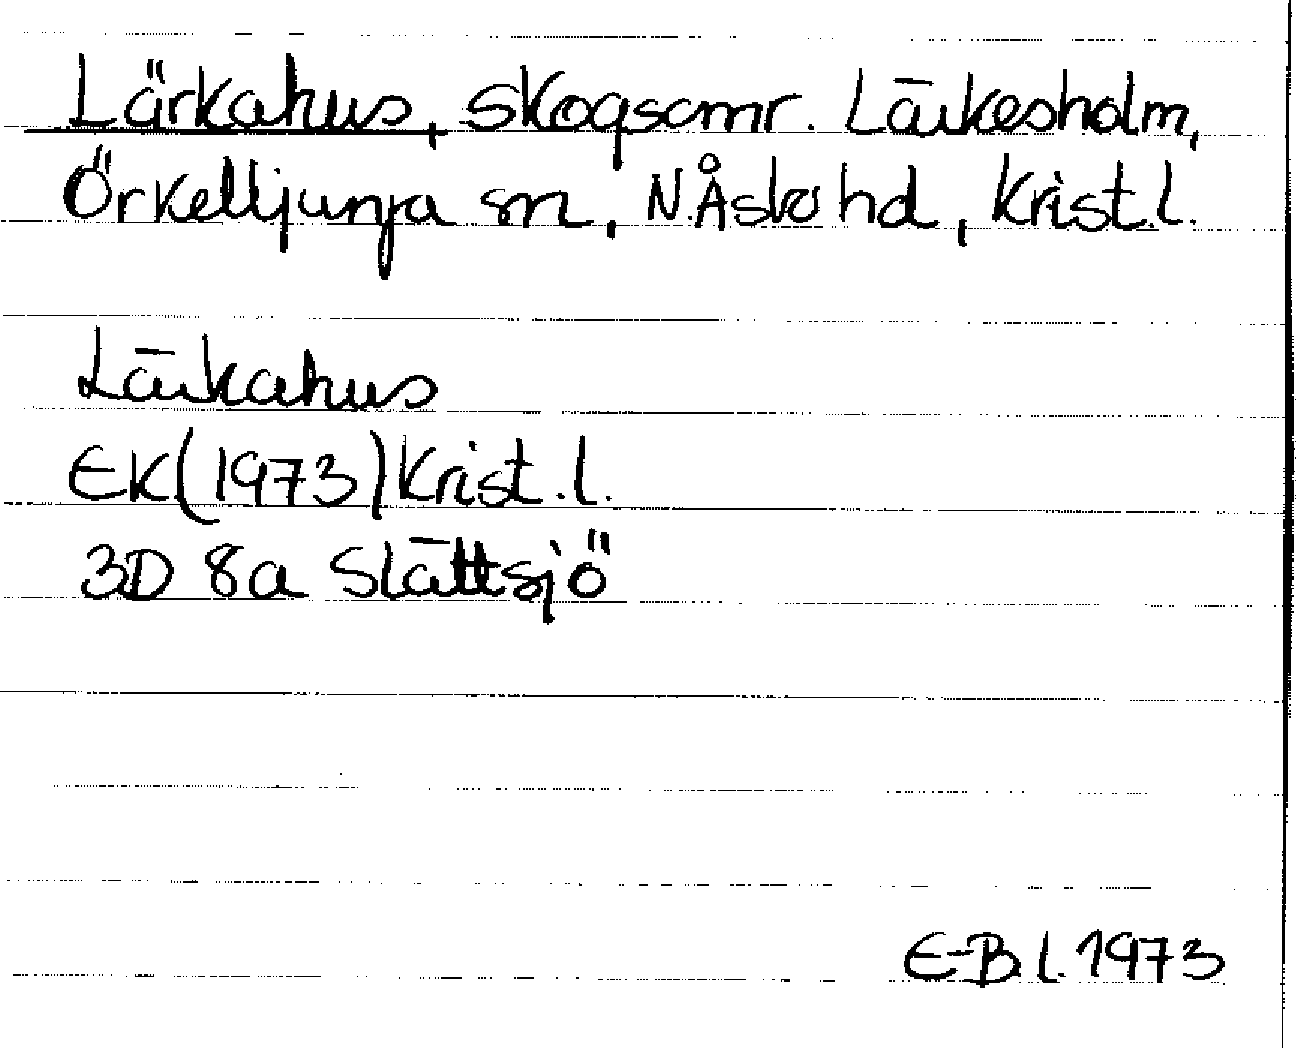 Lärkahus, skogsomr. Lärkesholm,
Örkelljunga sn, N.Åsbo hd, Krist.l.
Lärkahus
EK(1973)Krist.l.
3D 8a Slättsjö
E-B.L.1973